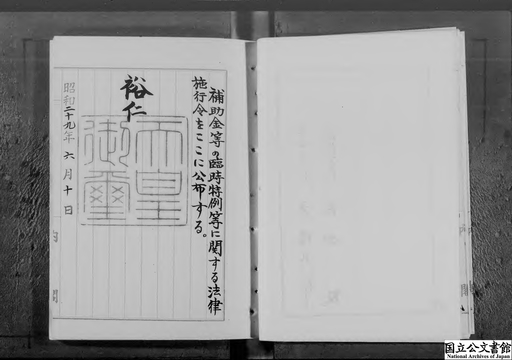 補助金等の臨時特例等に関する法律
施行令をここに公布する。
裕仁
天皇
御璽
昭和二十九年六月十日
国立公文書館
National Archives of Japan